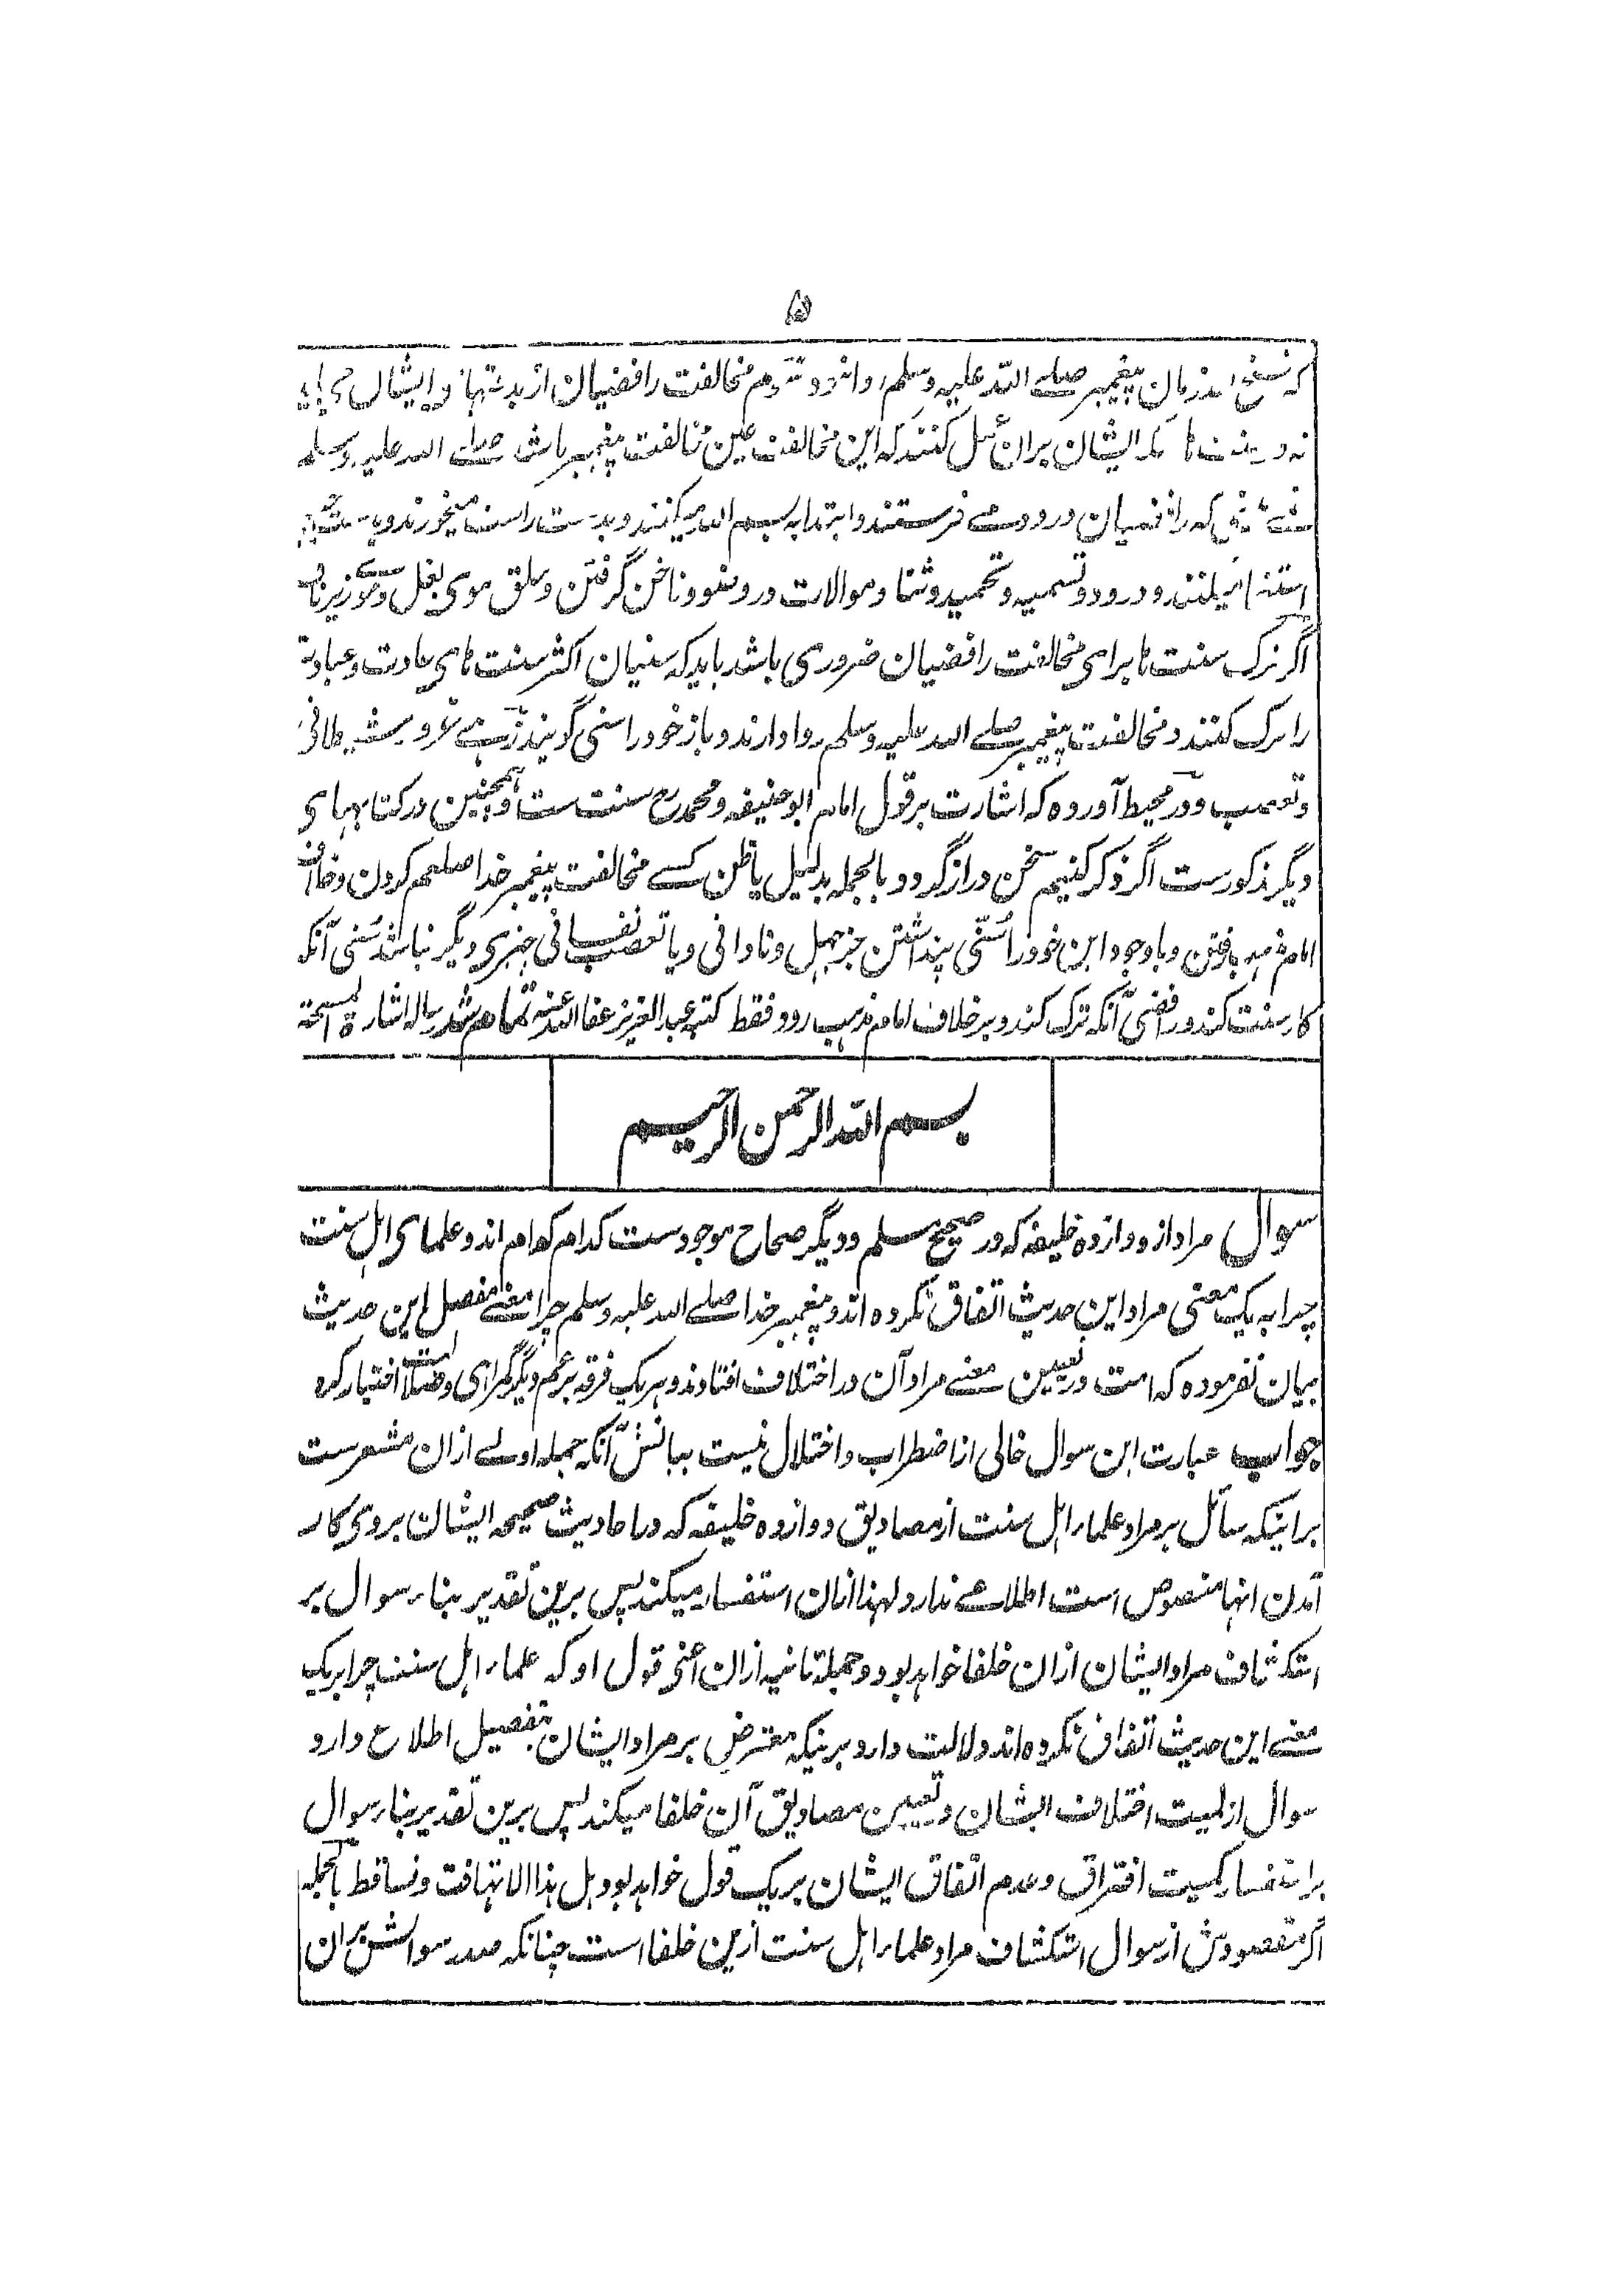 ۵
پیغمبر صلے اللہ علیہ وسلم روا مخالفت رافضیان از
ایشان بران کنند کہ این مخالفت عین مخالفت پیغمبر باشد صلے اللہ علیہ وسلم
کہ رافضیان درود مے فرستند و ابتدا بہ بسم اللہ میکنند و بدست راست میخورند و
و درود و تسمیہ و تحمید و ثنا و موالات در وضو و ناخن گرفتن و حلق موی بغل و
اگر ترک سنت ہا برای مخالفت رافضیان ضروری باشد باید کہ سنیان اکثر سنت ہای عادت و عبادت
را ترک کنند و مخالفت پیغمبر صلے اللہ علیہ وسلم روا دارند و باز خود را سنی گویند زہے
و تعصب و در محیط آوردہ کہ اشارت بر قول امام ابو حنیفہ و محمد رح سنت ست و ہمچنین در کتابہای
دیگر مذکورست اگر ذکر کنیم سخن دراز گردد و بالجملہ بدلیل یا ظن کسے مخالفت پیغمبر خدا صلعم کردن و خلاف
امام مذہب یافتن و با وجود این خود را سُنّی پنداشتن جز جہل و نادانی و یا تعصب نفسانی چیزی دیگر نباشد سُنی آنکہ
کار سنت کند و رافضی آنکہ ترک کند و بر خلاف امام مذہب رود فقط کتبہ عبد العزیز عفا اللہ عنہ تمام شد رسالہ اشارہ المسبحۃ
بسم اللہ الرحمن الرحیم
سوال مراد از دوازدہ خلیفہ کہ در صحیح مسلم و دیگر صحاح موجودست کدام کدام اند و علمای اہل سنت
چرا بہ یک معنی مراد این حدیث اتفاق نکردہ اند و پیغمبر خدا صلے اللہ علیہ وسلم چرا معنے مفصل این حدیث
بیان نفرمودہ کہ امت در تعیین معنے مراد آن در اختلاف افتادند و ہر یک فرقہ بزعم دیگر گمراہی و ضلالت اختیار کردہ
جواب عبارت این سوال خالی از اضطراب و اختلال نیست بیانش آنکہ جملہ اولے ازان مشعرست
براینکہ سائل بر مراد علماء اہل سنت از مصادیق دوازدہ خلیفہ کہ در احادیث صحیحہ ایشان بروی کار
آمدن انہا منصوص است اطلاعے ندارد لہذا ازان استفسار میکند پس برین تقدیر بناء سوال بر
استکشاف مراد ایشان ازان خلفا خواہد بود و جملہ ثانیہ ازان اعنی قول او کہ علماء اہل سنت چرا بر یک
معنے این حدیث اتفاق نکردہ اند دلالت دارد برینکہ معترض بر مراد ایشان بتفصیل اطلاع دارد
سوال از لمیت اختلاف ایشان و تعیین مصادیق آن خلفا میکند پس برین تقدیر بناء سوال
بر استفسار لمیت افتراق و عدم اتفاق ایشان بر یک قول خواہد بود و ہل ہذا الا تہافت و تساقط بالجملہ
اگر مقصودش از سوال استکشاف مراد علماء اہل سنت ازین خلفا است چنانکہ صدر سوالش بران